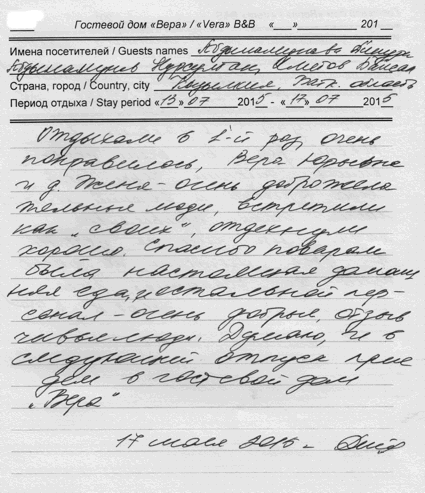 Гостевой дом «Вера» / «Vera» B&B «__» ________ 201__
Имена посетителей / Guests names Абдымамунова Динура
Абдымамунов Нурсултан, Аметов Бексал
Страна, город / Country, city Кыргызия, Чатк. область
Период отдыха / Stay period «13» 07 2015 - «17» 07 2015
Отдыхали в 1-й раз, очень
понравилось, Вера Юрьевна
и д. Женя - очень доброжела
тельные люди, встретили
как „своих“, отдохнули
хорошо. Спасибо поварам
была настоящая домаш
няя еда, остальной пер-
сонал - очень добрые, отзыв
чивые люди. Думаю, и в
следующий отпуск прие
дем в гостевой дом
„Вера“
17 июля 2015 г.